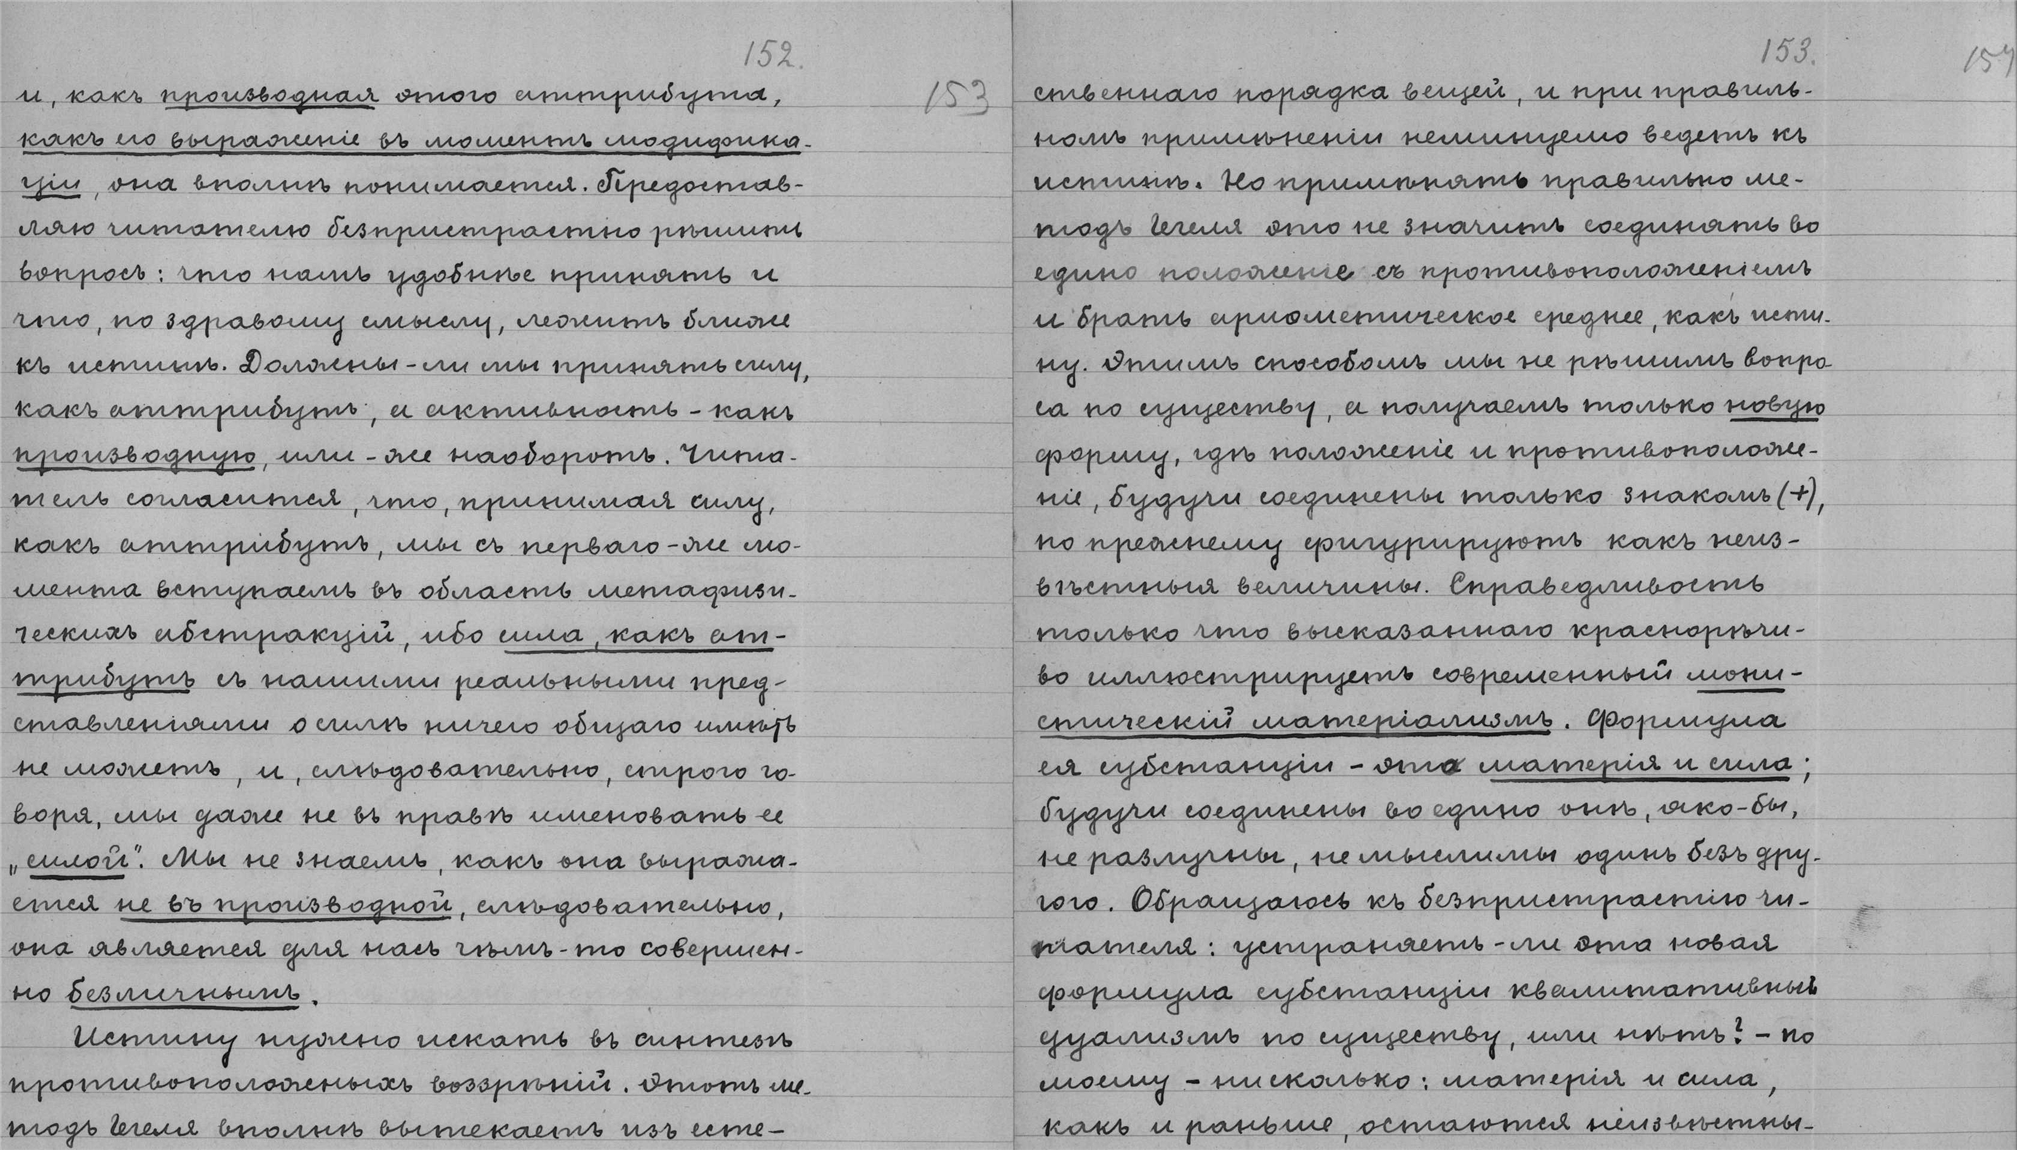 152.
153
и, какъ производная этого аттрибута,
какъ его выраженіе въ моментъ модифика-
ціи, она вполнѣ понимается. Предостав-
ляю читателю безпристрастно рѣшить
вопросъ: что намъ удобнѣе принять и
что, по здравому смыслу, лежитъ ближе
къ истинѣ. Должены-ли мы принять силу,
какъ аттрибутъ, а активность - какъ
производную, или-же наоборотъ. Чита-
тель согласится, что, принимая силу,
какъ аттрибутъ, мы съ перваго-же мо-
мента вступаемъ въ область метафизи-
ческихъ абстракцій, ибо сила, какъ ат-
трибутъ съ нашими реальными пред-
ставленіями о силѣ ничего общаго имѣть
не можетъ, и, слѣдовательно, строго го-
воря, мы даже не въ правѣ именовать ее
„силой". Мы не знаемъ, какъ она выража-
ется не въ производной, слѣдовательно,
она является для насъ чѣмъ-то совершен-
но безличнымъ.
Истину нужно искать въ синтезѣ
противоположеныхъ воззрѣній. Этотъ ме-
тодъ Гегеля вполнѣ вытекаетъ изъ есте-
153.
154
ственнаго порядка вещей, и при правиль-
номъ примѣненіи неминуемо ведетъ къ
истинѣ. Но примѣнять правильно ме-
тодъ Гегеля это не значитъ соединять во
едино положеніе съ противоположеніемъ
и брать ариѳметическое среднее, какъ исти-
ну. Этимъ способомъ мы не рѣшимъ вопро-
са по существу, а получаемъ только новую
форму, гдѣ положеніе и противоположе-
ніе, будучи соединены только знакомъ (+),
по прежнему фигурируютъ какъ неиз-
вѣстныя величины. Справедливость
только что высказаннаго краснорѣчи-
во иллюстрируетъ современный мони-
стическій матеріализмъ. Формула
ея субстанціи - это матерія и сила;
будучи соединены во едино онѣ, яко-бы,
не разлучны, не мыслимы одинъ безъ дру-
гого. Обращаюсь къ безпристрастію чи-
тателя: устраняетъ-ли эта новая
формула субстанціи квалитативный
дуализмъ по существу, или нѣтъ? - по
моему - нисколько: матерія и сила,
какъ и раньше, остаются неизвѣстны-